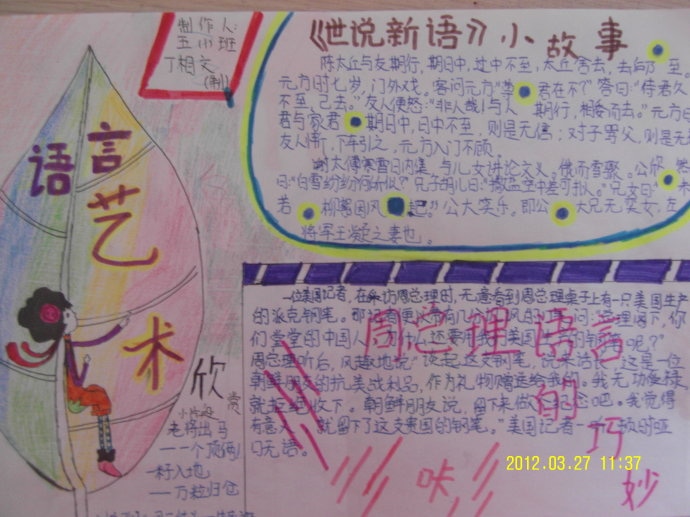 制作人:
五小班
丁相文
(制)
语言
艺
术
欣
赏
小片段
老将出马
一个顶俩
一籽入地
一万粒归仓
《世说新语》小故事
陈太丘与友期行,期日中,过中不至,太丘舍去,去后乃至。
元方时七岁,门外戏。客问元方:"尊君在不?"答曰:"待君久
不至,已去。"友人便怒:"非人哉!与人期行,相委而去。"元方曰
君与家君期日中,日中不至,则是无信;对子骂父,则是无
友人惭,下车引之,元方入门不顾。
谢太傅寒雪日内集,与儿女讲论文义。俄而雪聚。公欣然
曰:"白雪纷纷何所似?"兄子胡儿曰:"撒盐空中差可拟。"兄女曰未
若柳絮因风起。"公大笑乐。即公大兄无奕女,左
将军王凝之妻也。
一位美国记者,在采访周总理时,无意看到周总理桌子上有一只美国生产
的派克钢笔。那记者便以带有几分讽刺的口吻问:"总理阁下,你
们堂堂的中国人,为什么还要用我们美国生产的钢笔呢?"
周总理听后,风趣地说"谈起这支钢笔,说来话长,这是一位
朝鲜朋友的抗美战利品,作为礼物赠送给我的。我无功受禄
就拒绝收下。朝鲜朋友说,留下来做个纪念吧。我觉得
有意义,就留下了这支贵国的钢笔。"美国记者一顿时哑
口无语。
周总理语言
的
巧
妙
咔
2012.03.27 11:37